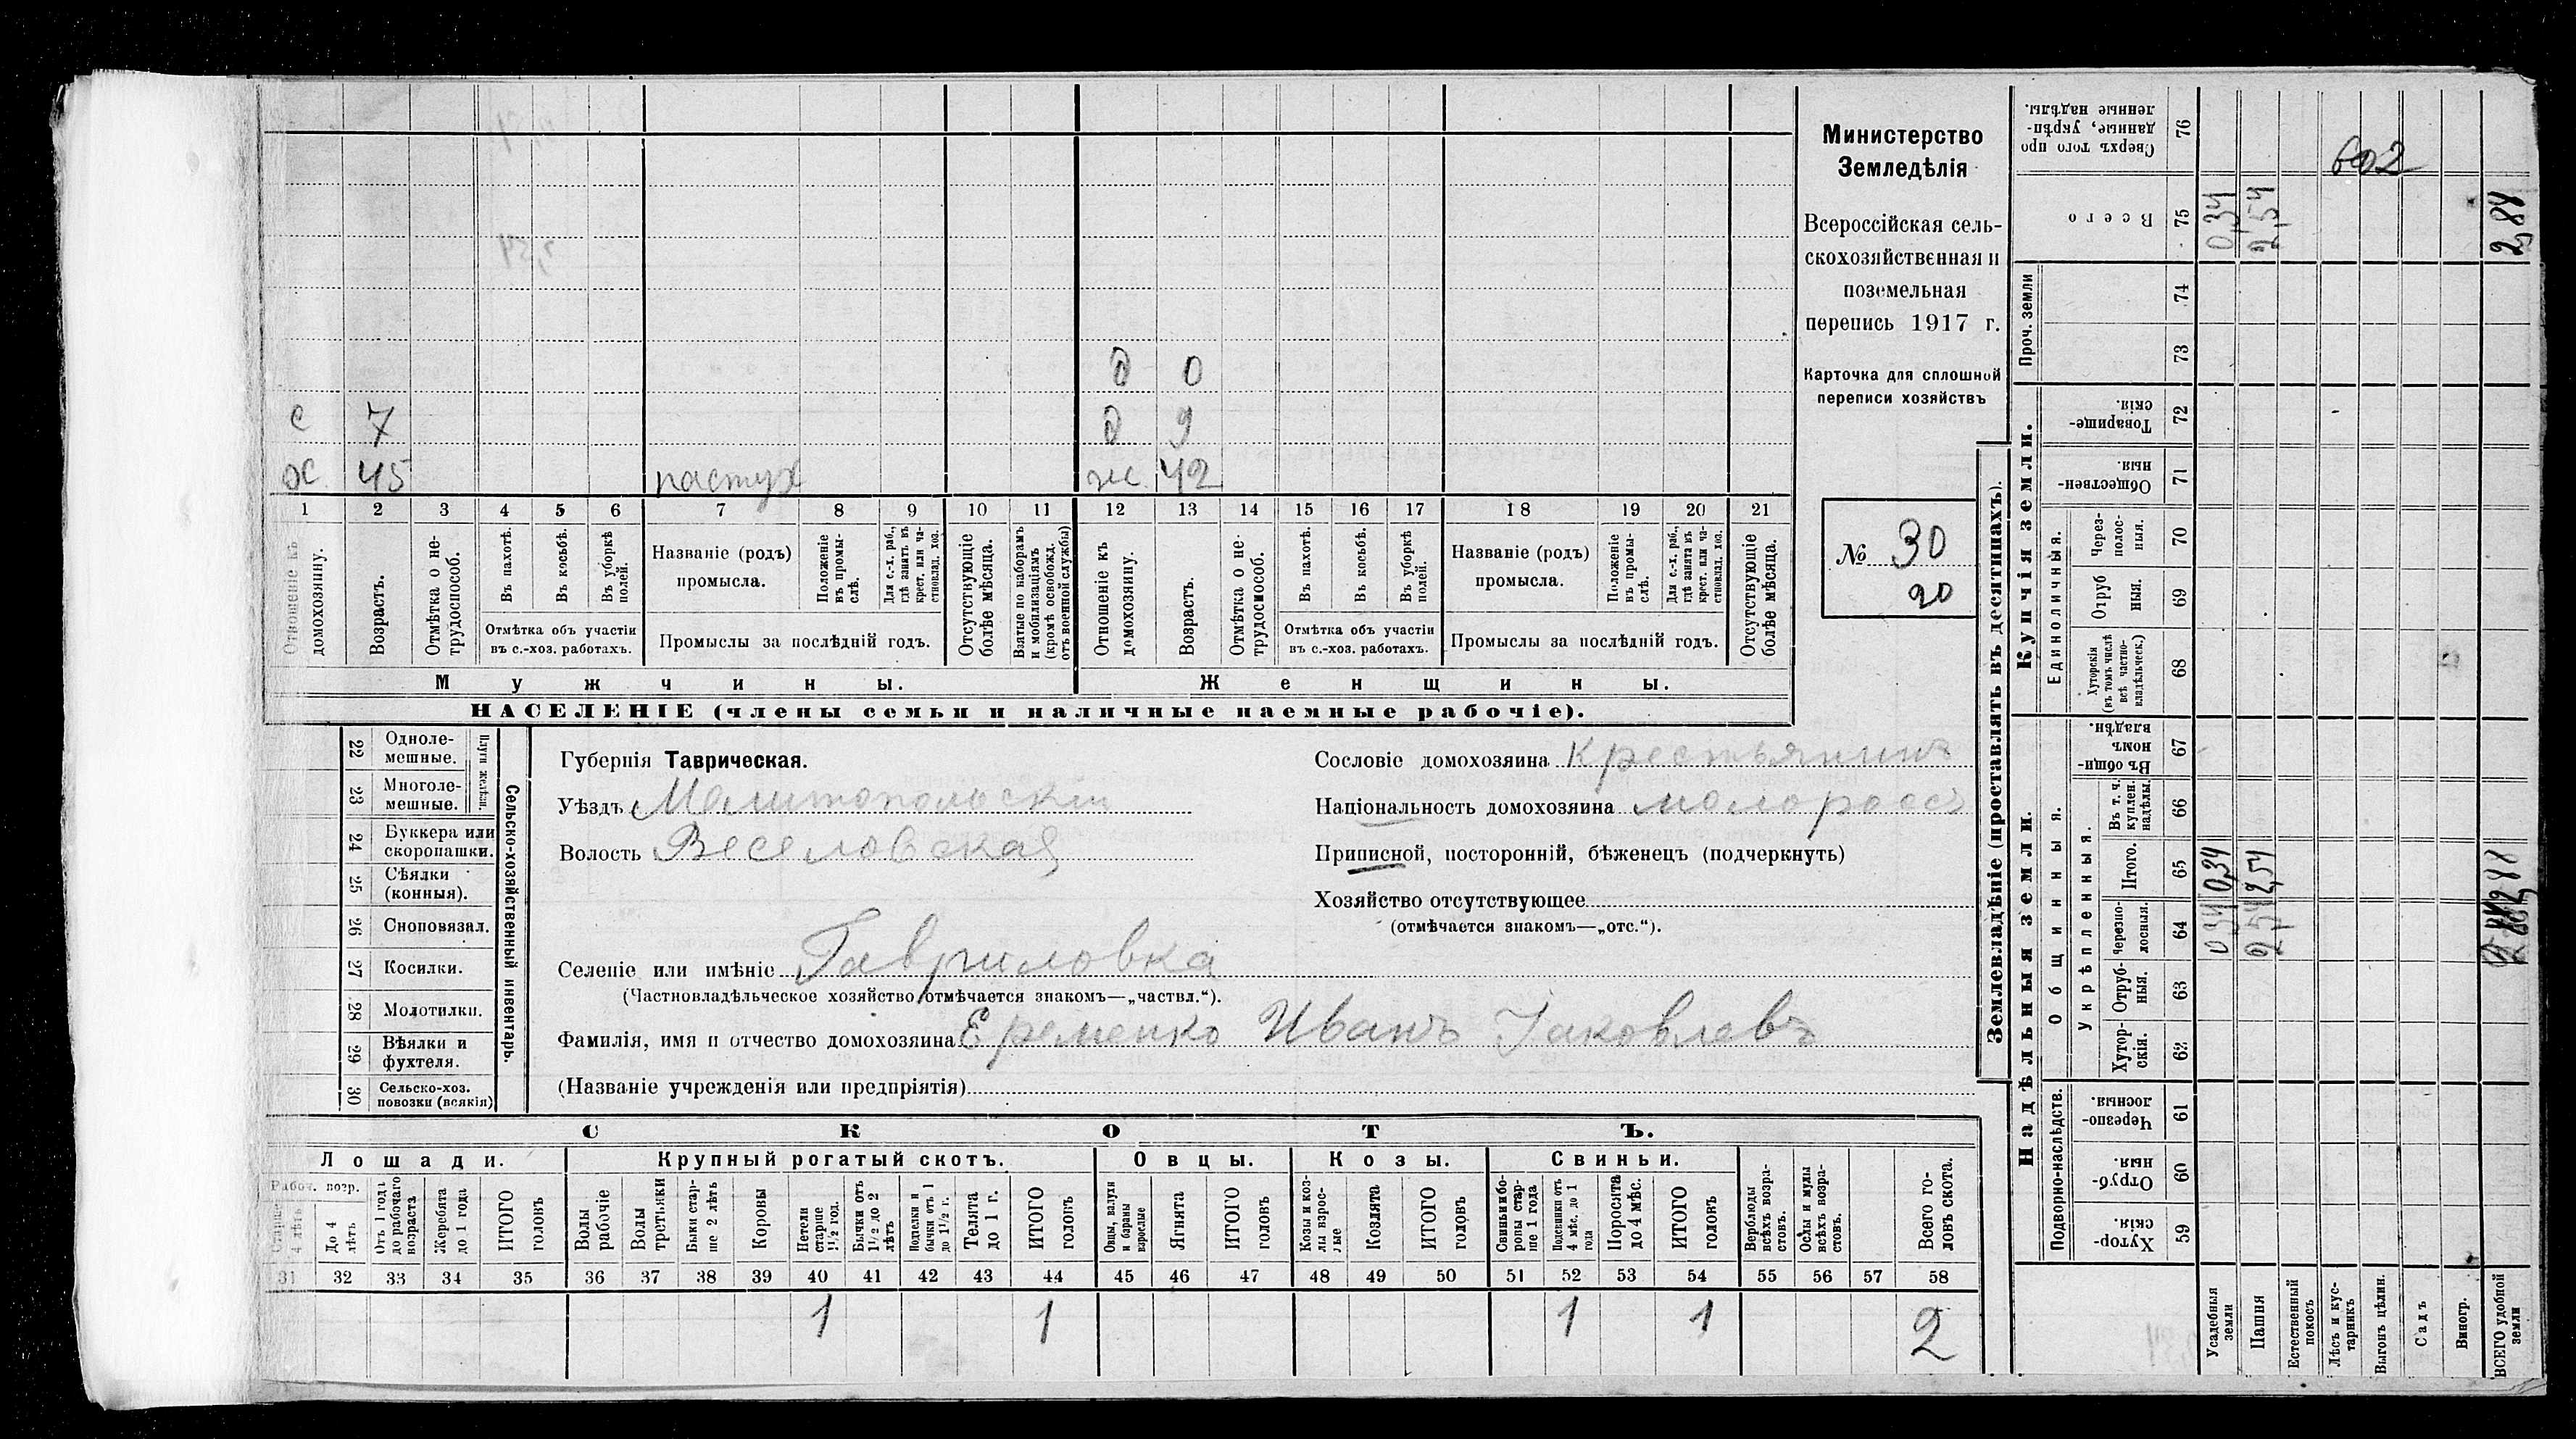 Министерство
Земледѣлія
Всероссійская сель-
скохозяйственная и
поземельная
перепись 1917 г.
Карточка для сплошной
переписи хозяйствъ
№ 30
20
д 0
с 7 д 9
х 45 пастух ж 42
1 2 3 4 5 6 7 8 9 10 11 12 13 14 15 16 17 18 19 20 21
Отношеніе къ домохозяину.
Возрастъ.
Отмѣтка о не-трудоспособ.
Въ пахотѣ.
Въ косьбѣ.
Въ уборкѣ полей.
Отмѣтка объ участіи
въ с.-хоз. работахъ.
Названіе (родъ)
промысла.
Положеніе въ промы-слѣ.
Для с.-х. раб., гдѣ занятъ въ крест. или ча-стновлад. хоз.
Промыслы за послѣдній годъ.
Отсутствующіе болѣе мѣсяца.
Взятые по наборамъ и мобилизаціямъ (кромѣ освобожд. отъ военной службы)
Отношеніе къ домохозяину.
Возрастъ.
Отмѣтка о не-трудоспособ.
Въ пахотѣ.
Въ косьбѣ.
Въ уборкѣ полей.
Отмѣтка объ участіи
въ с.-хоз. работахъ.
Названіе (родъ)
промысла.
Положеніе въ промы-слѣ.
Для с.-х. раб., гдѣ занята въ крест. или ча-стновлад. хоз.
Промыслы за послѣдній годъ.
Отсутствующіе болѣе мѣсяца.
Мужчины. Женщины.
НАСЕЛЕНІЕ (члены семьи и наличные наемные рабочіе).
Сельско-хозяйственный инвентарь.
Плуги желѣзн.
22 Одноле-мешные.
23 Многоле-мешные.
24 Буккера или скоропашки.
25 Сѣялки (конныя).
26 Сноповязал.
27 Косилки.
28 Молотилки.
29 Вѣялки и фухтеля.
30 Сельско-хоз. повозки (всякія)
Губернія Таврическая.
Уѣздъ Мелитопольскій
Волость Веселовская
Сословіе домохозяина Крестьянинъ
Національность домохозяина малороссъ
Приписной, посторонній, бѣженецъ (подчеркнуть)
Хозяйство отсутствующее
(отмѣчается знакомъ—„отс.“).
Селеніе или имѣніе Гавриловка
(Частновладѣльческое хозяйство отмѣчается знакомъ—„частвл.“).
Фамилія, имя и отчество домохозяина Еременко Иванъ Іаковлевъ
(Названіе учрежденія или предпріятія)
СКОТЪ.
Лошади. Крупный рогатый скотъ. Овцы. Козы. Свиньи.
Рабоч. возр.
Старше 4 лѣтъ
До 4 лѣтъ
Отъ 1 года до рабочаго возраста
Жеребята до 1 года
ИТОГО головъ
Волы рабочіе
Волы третьяки
Быки стар-ше 2 лѣтъ
Коровы
Нетели старше 1½ год.
Бычки отъ 1½ до 2 лѣтъ
Подтелки и бычки отъ 1 до 1½ г.
Телята до 1 г.
ИТОГО головъ
Овцы, валухи и бараны взрослые
Ягнята
ИТОГО головъ
Козы и коз-лы взрос-лые
Козлята
ИТОГО головъ
Свиньи и бо-ровы стар-ше 1 года
Подсвинки отъ 4 мѣс. до 1 года
Поросята до 4 мѣс.
ИТОГО головъ
Верблюды всѣхъ возра-стовъ.
Ослы и мулы всѣхъ возра-стовъ.
Всего го-ловъ скота.
31 32 33 34 35 36 37 38 39 40 41 42 43 44 45 46 47 48 49 50 51 52 53 54 55 56 57 58
1 1 1 1 2
Землевладѣніе (проставлять въ десятинахъ).
Купчія земли.
Надѣльныя земли.
Проч. земли
Единоличныя.
Общинныя.
Укрѣпленныя.
Подворно-наслѣдств.
76 Сверхъ того про данные, укрѣп-ленные надѣлы.
75 Всего
74
73
72 Товарище-скія.
71 Обществен-ныя.
70 Через-полос-ныя.
69 Отруб ныя.
68 Хуторскія (въ томъ числѣ всѣ частно-владѣльческ.)
67 Въ общи-номъ владѣн.
66 Въ т. ч. куплен. надѣлы.
65 Итого.
64 Черезпо-лосныя.
63 Отруб-ныя.
62 Хутор-скія.
61 Черезпо-лосныя.
60 Отруб-ныя.
59 Хутор-скія.
Усадебныя земли 0,34 0,34 0,34
Пашня 2,54 2,54 2,54
Естественный покосъ
Лѣсъ и кус-тарникъ
Выгонъ цѣлин.
Садъ
Виногр.
ВСЕГО удобной земли 2,88 2,88
602